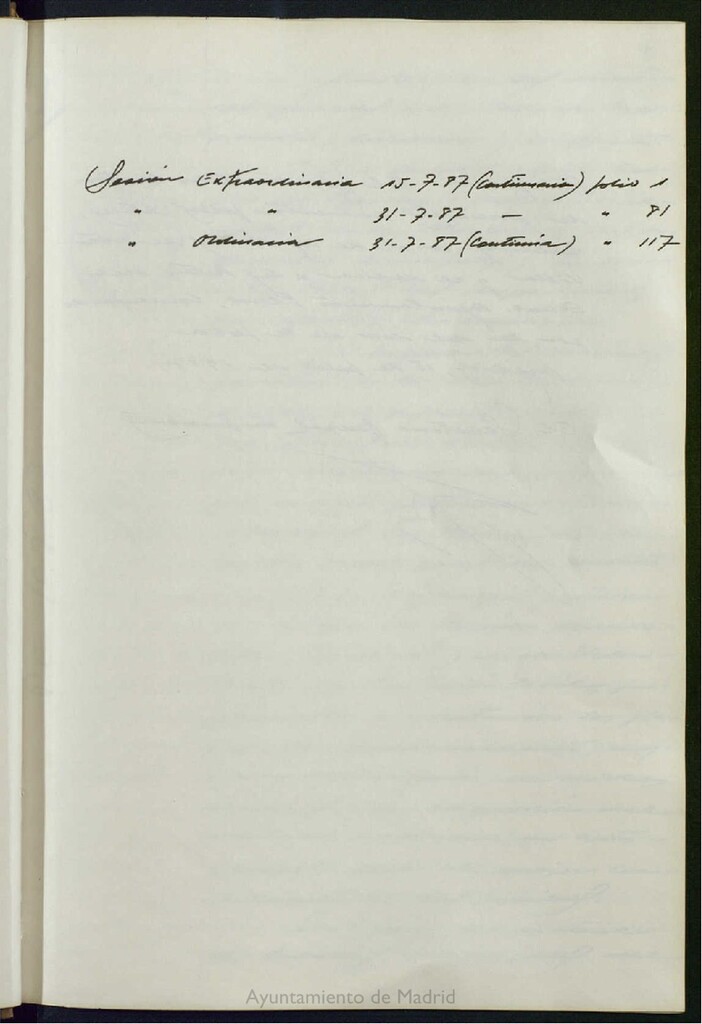 Sesión Extraordinaria 15-7-87 (Continuación) folio 1
" " 31-7-87 — " 81
" Ordinaria 31-7-87 (Continúa) " 117
Ayuntamiento de Madrid